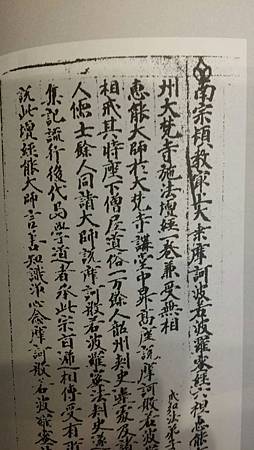 南宗頓教最上大乘摩訶般若波羅蜜經六祖惠能
州大梵寺施法壇經一卷兼受無相
戒弘法弟子
惠能大師於大梵寺講堂中昇高座說摩訶般若波羅
相戒其時座下僧尼道俗一万餘人韶州刾史違處及諸
人儒士餘人同請大師說摩訶般若波羅蜜法刾史遂
集記流行後代与學道者承此宗旨遞相傳受有所
說此壇經能大師言善知識淨心念摩訶般若波羅蜜